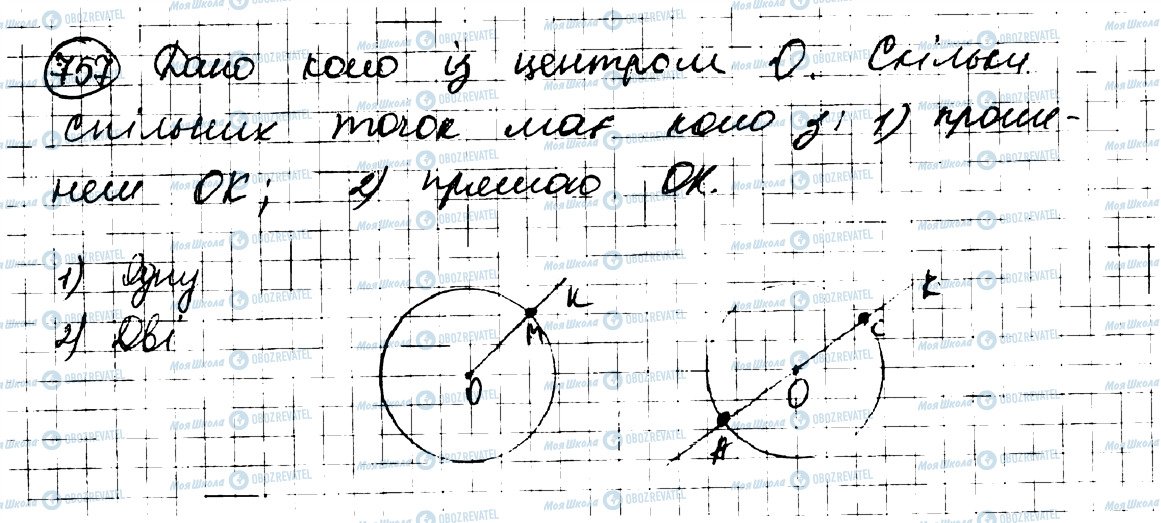 757 Дано коло із центром О. Скільки
спільних точок має коло з: 1) проме-
нем ОК; 2) прямою ОК.
1) Одну
2) Дві
К
М
О
К
С
О
А
МояШкола OBOZREVATEL